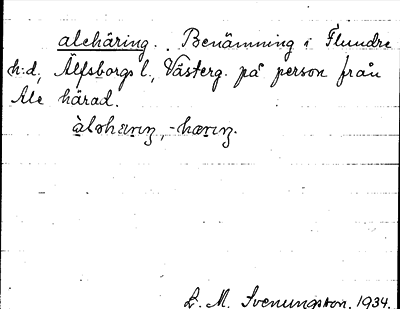 alehäring. Benämning i Flundre
h:d, Älfsborgs l., Västerg. på person från
Ale härad.
àləhærıŋ, -hærıŋ.
L. M. Svenungsson. 1934.